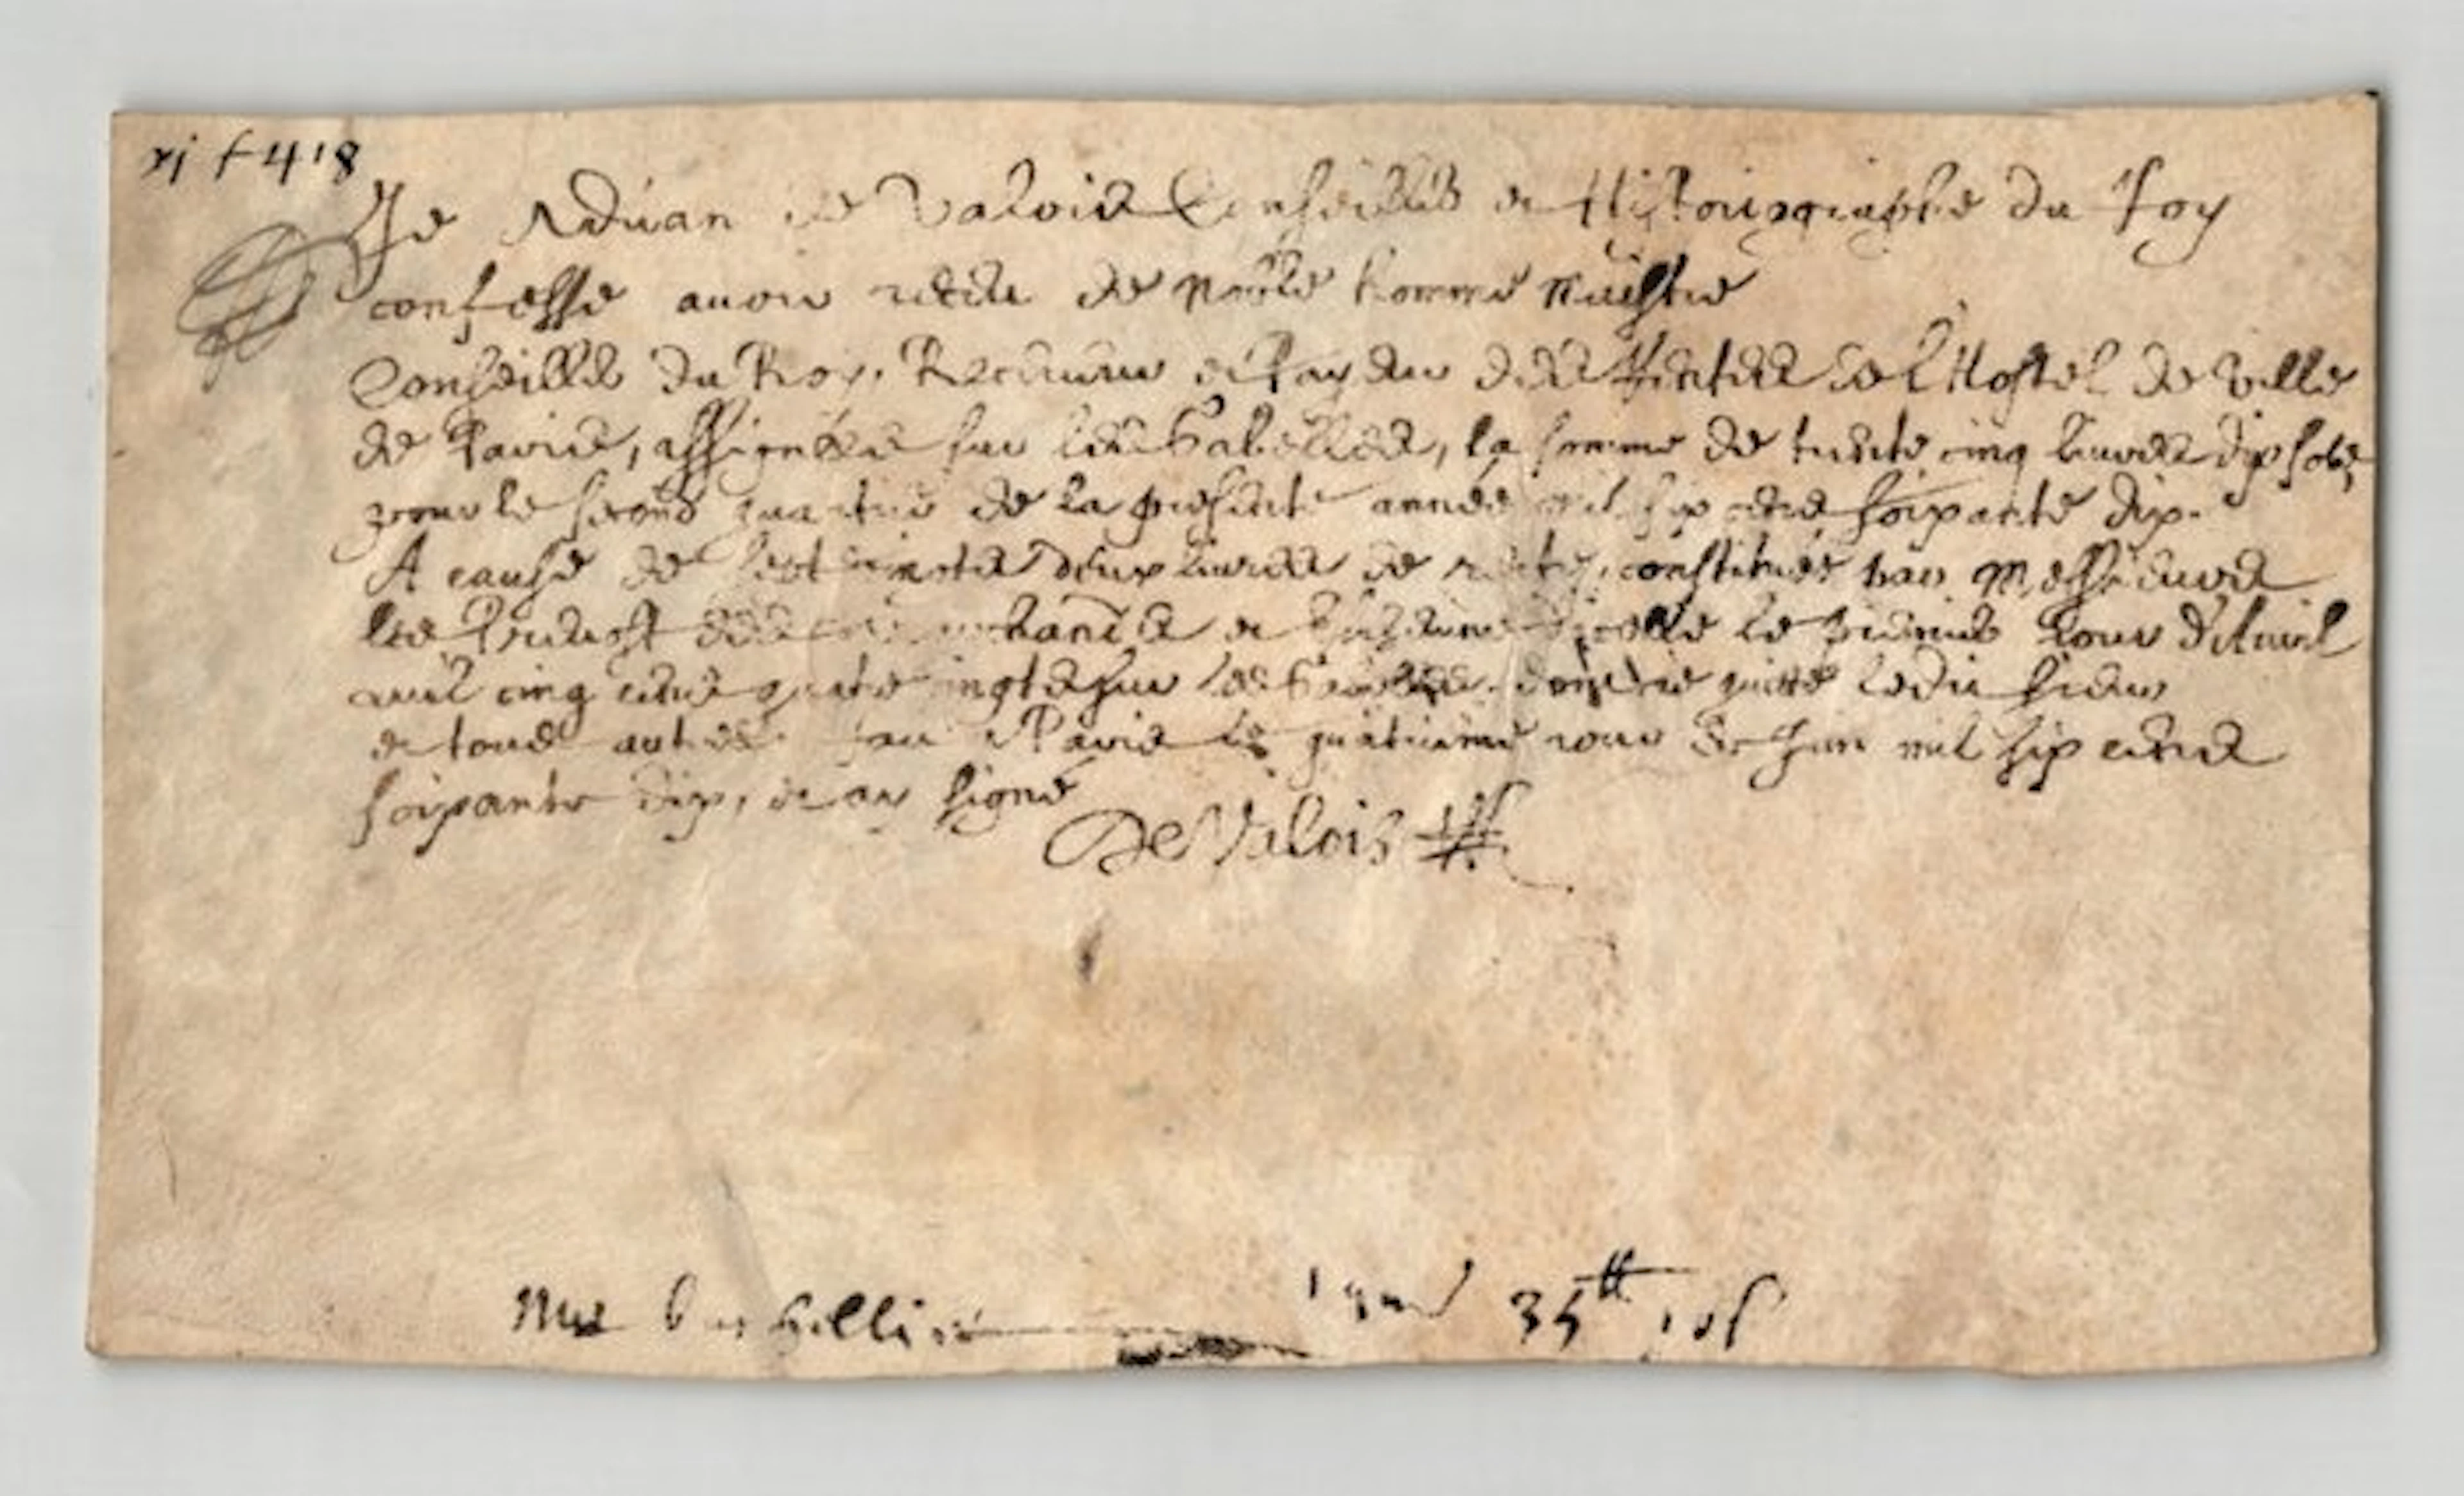 xj f 418
Je Adrian de Valois Conseiller et Historiographe du Roy
confesse avoir receu de noble homme Maistre
Conseiller du Roy, Receveur et Payeur des Rentes de l'Hostel de Ville
de Paris, assignées sur les Gabelles, la somme de trente cinq livres dix solz
pour le second quartier de la presente année mil six cens soixante dix.
A cause de deux livres de rente, constituées par Messieurs
les Prevost des marchands et Eschevins le premier Jour d'Avril
mil cinq cens quatre vingts sur les Gabelles. dont je quitte ledit sieur
et tous autres. fait a Paris le quatrieme jour de Juin mil six cens
soixante dix, et ay signé
De Valois
35 tt 10 s